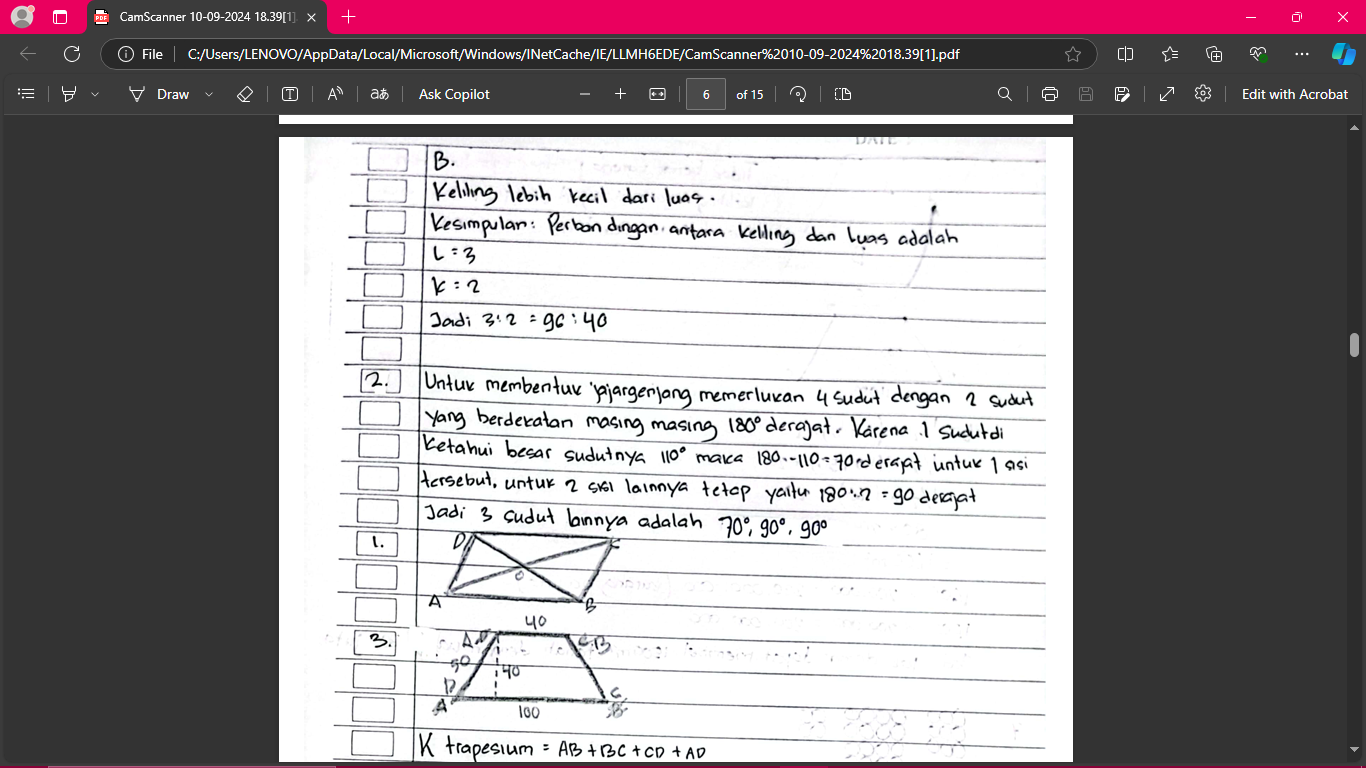 CamScanner 10-09-2024 18.39[1]
File C:/Users/LENOVO/AppData/Local/Microsoft/Windows/INetCache/IE/LLMH6EDE/CamScanner%2010-09-2024%2018.39[1].pdf
Draw Ask Copilot 6 of 15 Edit with Acrobat
B.
Keliling lebih kecil dari luas.
Kesimpulan: Perbandingan antara keliling dan luas adalah
L = 3
K = 2
Jadi 3:2 = 96 : 40
2. Untuk membentuk jajargenjang memerlukan 4 sudut dengan 2 sudut
yang berdekatan masing masing 180° derajat. Karena 1 sudut di
ketahui besar sudutnya 110° maka 180 - 110 = 70 derajat untuk 1 sisi
tersebut, untuk 2 sisi lainnya tetap yaitu 180:2 = 90 derajat
Jadi 3 sudut lainnya adalah 70°, 90°, 90°
1. D C
O
A B
40
3. A D C B
50 40
D C
A B
100
K trapesium = AB + BC + CD + AD